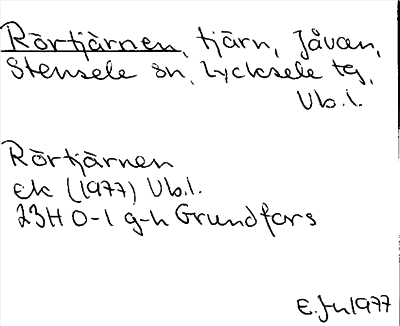 Rörtjärnen, tjärn, Jåvan,
Stensele sn, Lycksele tg,
Vb.l.
Rörtjärnen
ek (1977) Vb.l.
23H 0-1 g-h Grundfors
E. Jn 1977